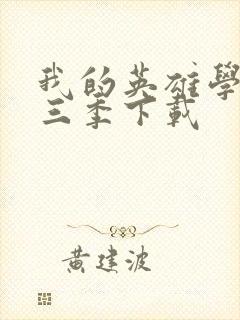 我的英雄學
三季下載
黃建波